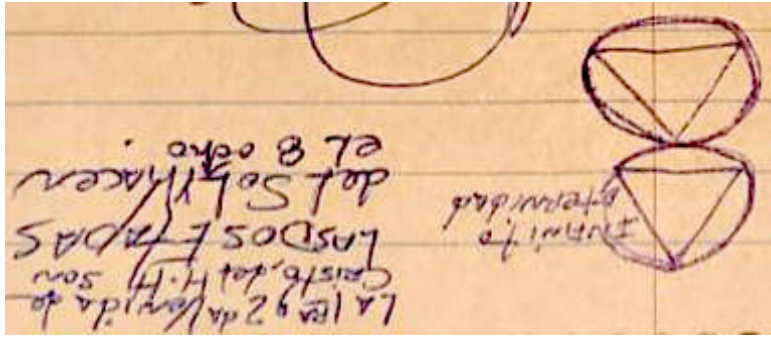 La 1RA y 2 da Venida de
Cristo, del H.H son
LAS DOS ETAPAS
del SoL Y hacen
el 8 ocho.
Infinito
eternidad